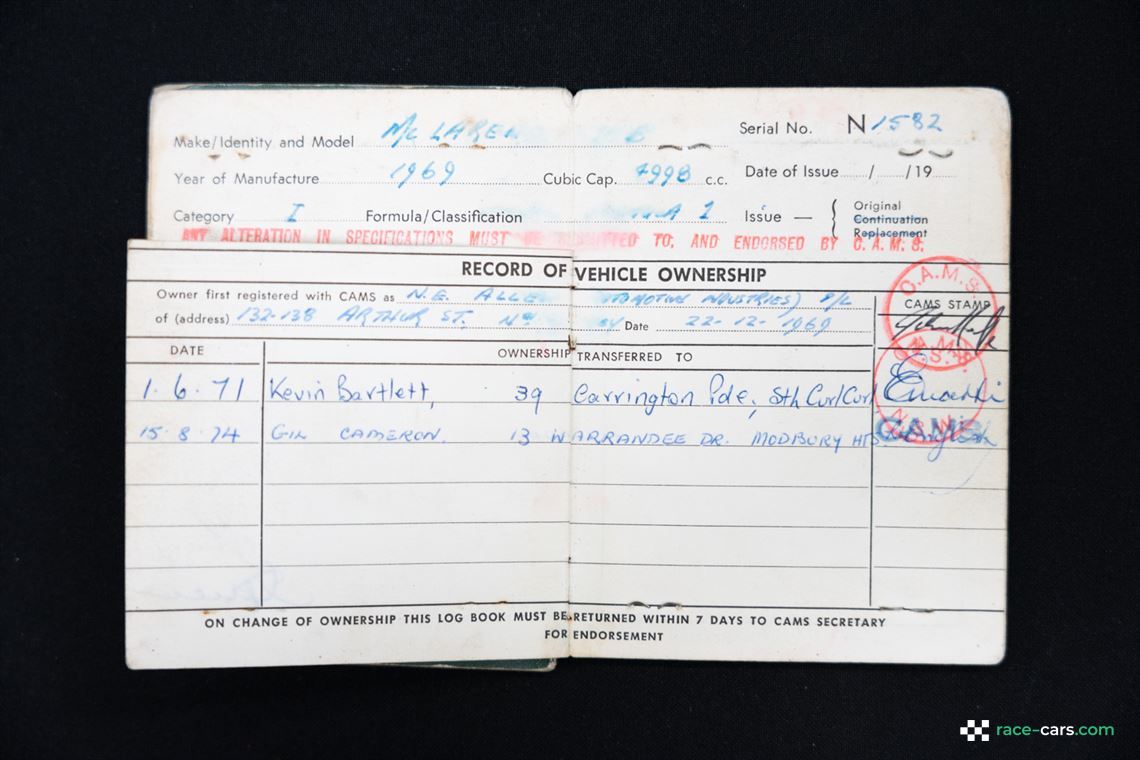 Make/Identity and Model Mc LAREN
Serial No. N 1582
Year of Manufacture 1969 Cubic Cap. 4998 c.c. Date of Issue / /19
Category I Formula/Classification 1 Issue — Original
Continuation
Replacement
ANY ALTERATION IN SPECIFICATIONS MUST TO, AND ENDORSED BY C.A.M.S.
RECORD OF VEHICLE OWNERSHIP
Owner first registered with CAMS as N.E. INDUSTRIES) P/L
of (address) 132-138 ARTHUR ST. Date 22-12-1969
CAMS STAMP
C.A.M.S.
DATE OWNERSHIP TRANSFERRED TO
1.6.71 Kevin Bartlett, 39 Carrington Pde, Sth Curl Curl
15.8.74 GIL CAMERON. 13 WARRANDEE DR. MODBURY HTS
ON CHANGE OF OWNERSHIP THIS LOG BOOK MUST BE RETURNED WITHIN 7 DAYS TO CAMS SECRETARY
FOR ENDORSEMENT
race-cars.com